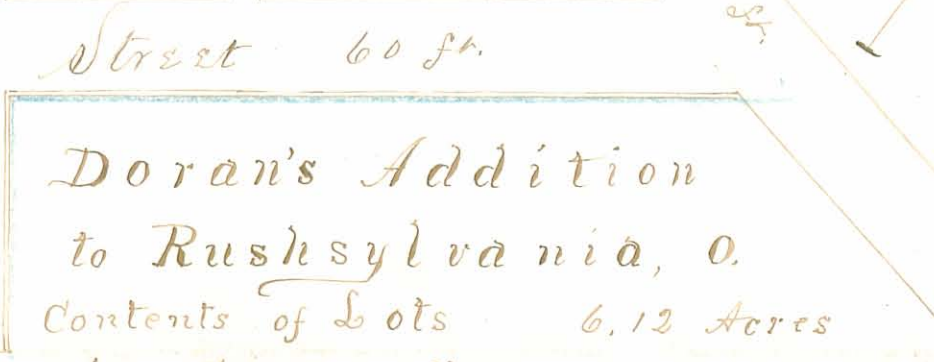 Street 60 ft.
St.
Doran's Addition
to Rushsylvania, O.
Contents of Lots 6.12 Acres